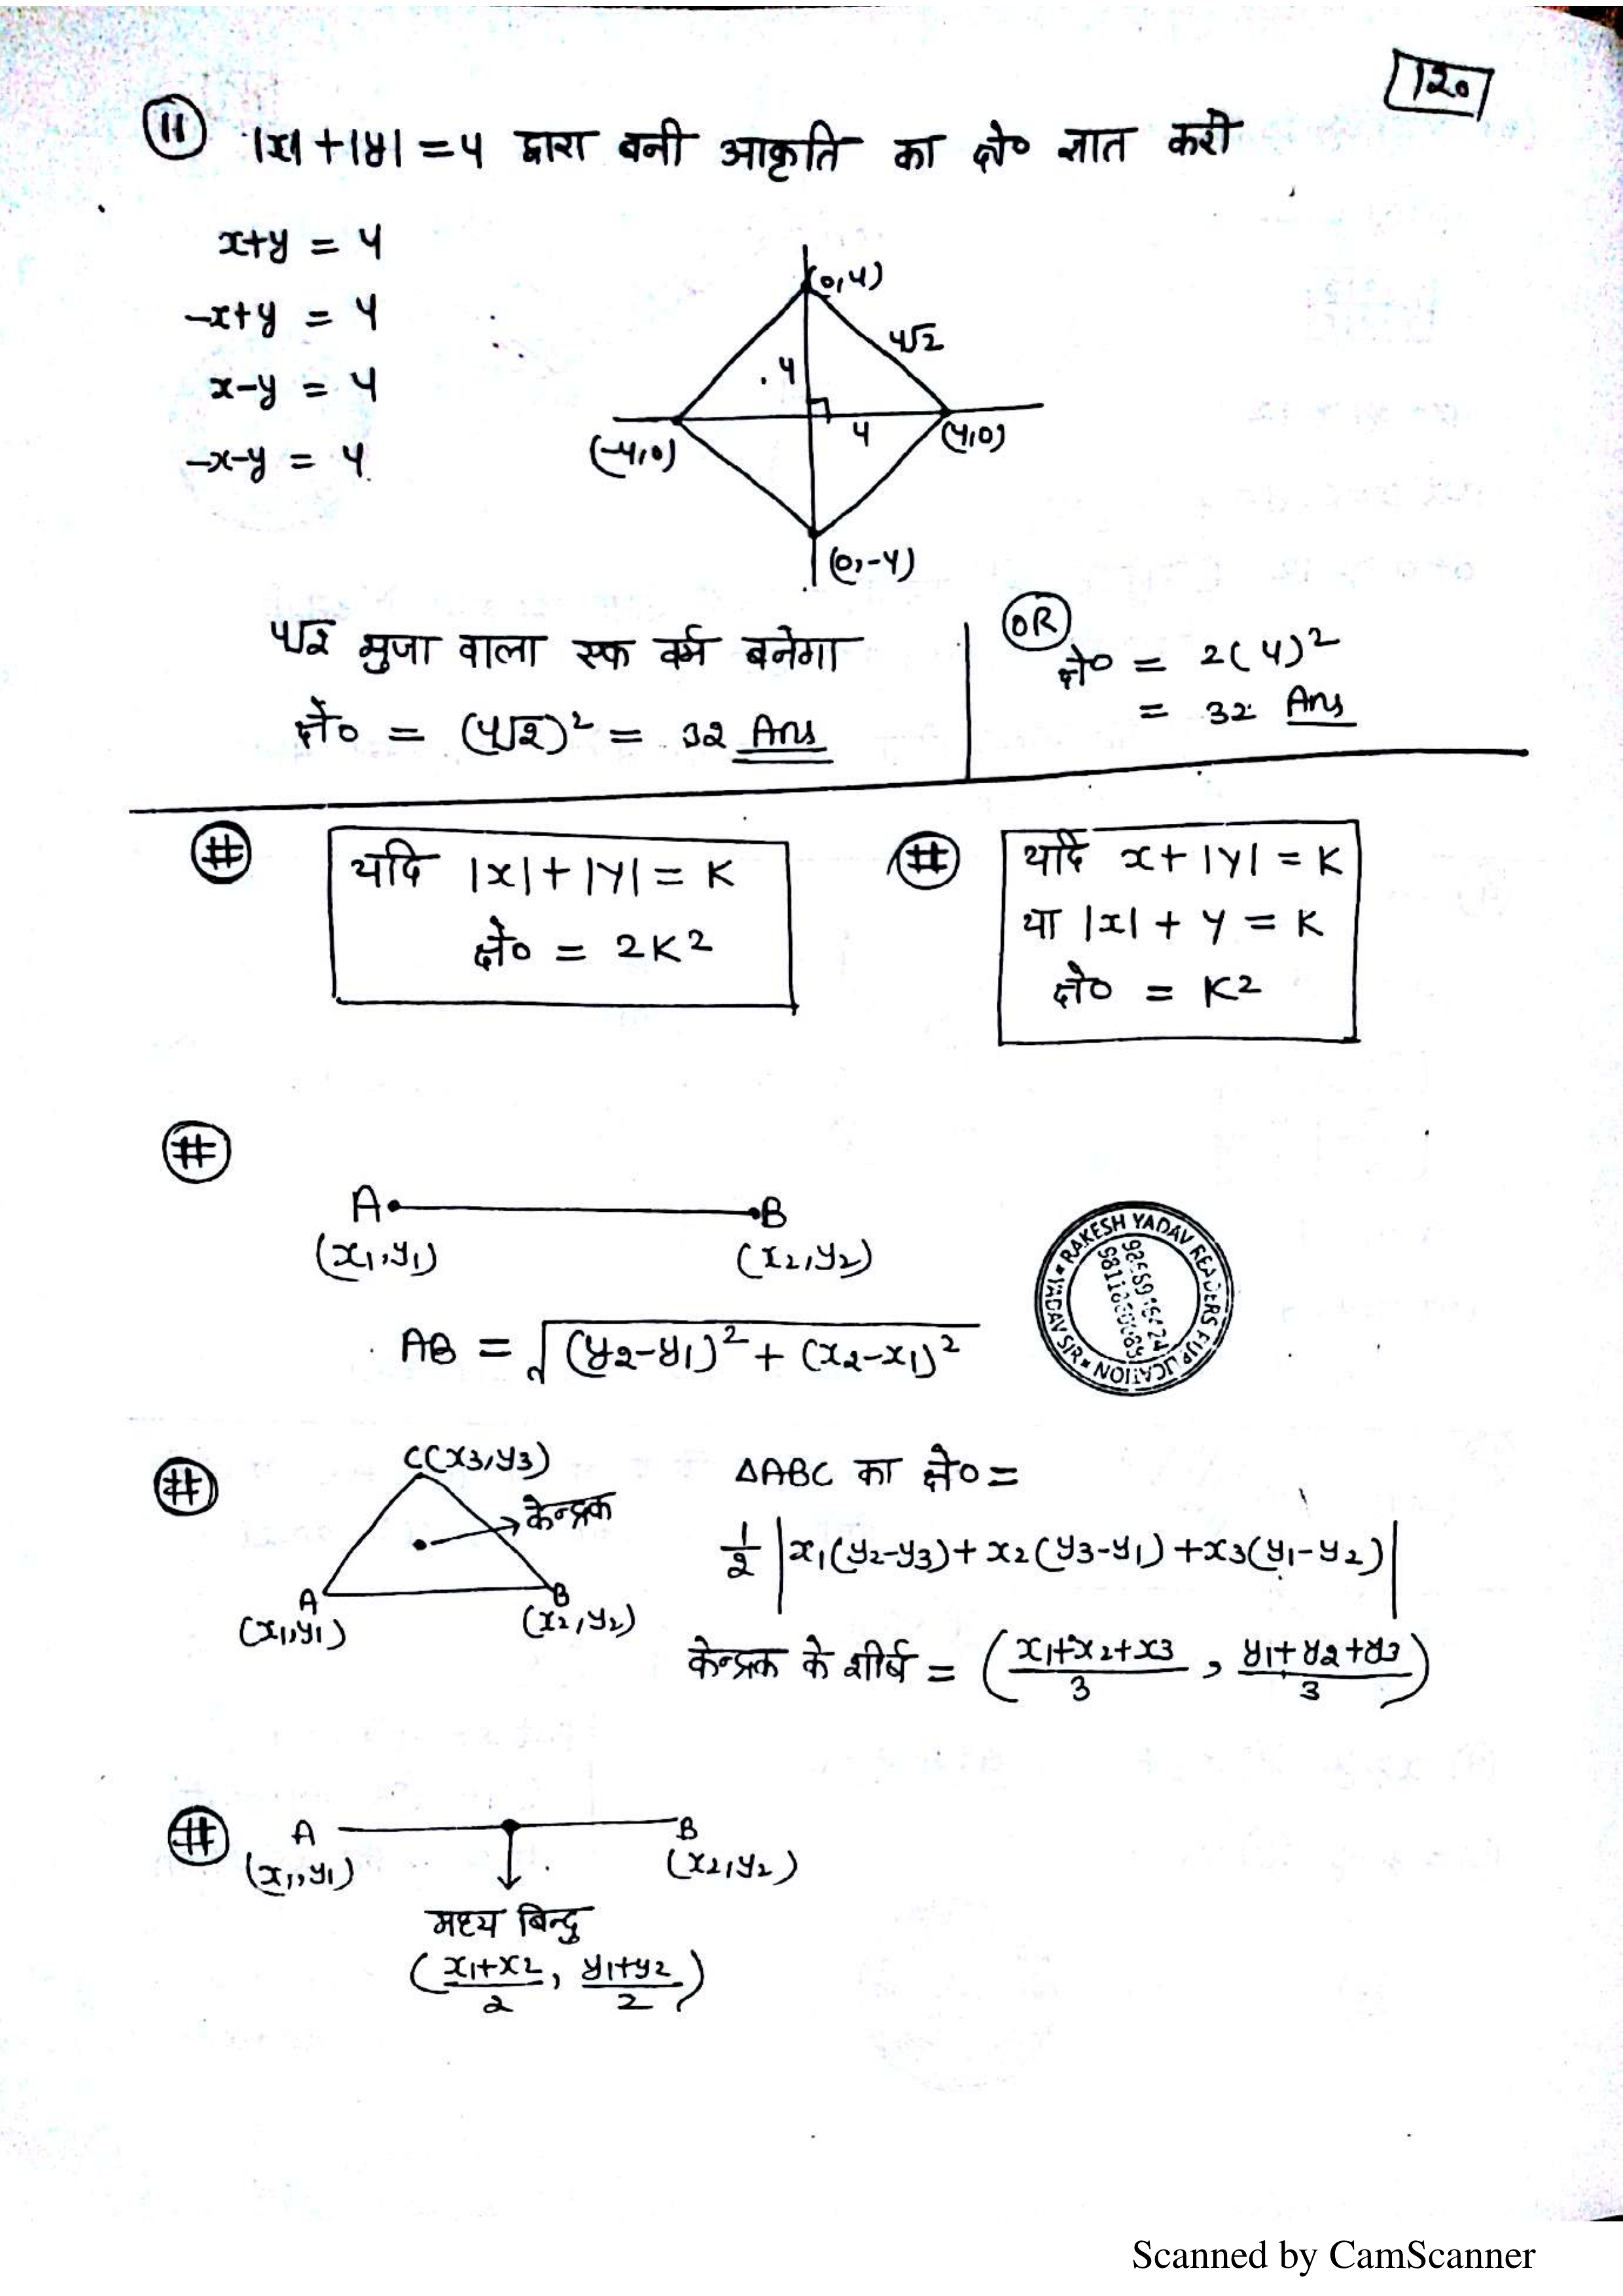 120
11 |x|+|y| = 4 द्वारा बनी आकृति का क्षे० ज्ञात करो
x+y = 4
-x+y = 4
x-y = 4
-x-y = 4
(0,4)
4√2
4
4
(-4,0)
(4,0)
(0,-4)
4√2 भुजा वाला एक वर्ग बनेगा
क्षे० = (4√2)² = 32 Ans
OR
क्षे० = 2(4)²
= 32 Ans
# यदि |x|+|y| = K
क्षे० = 2K²
# यदि x+|y| = K
या |x|+y = K
क्षे० = K²
#
A B
(x₁,y₁) (x₂,y₂)
AB = √(y₂-y₁)²+(x₂-x₁)²
RAKESH YADAV READERS PUBLICATION
YADAV SIR
#
C(x₃,y₃)
केन्द्रक
A B
(x₁,y₁) (x₂,y₂)
ΔABC का क्षे० =
1/2 |x₁(y₂-y₃)+x₂(y₃-y₁)+x₃(y₁-y₂)|
केन्द्रक के शीर्ष = (x₁+x₂+x₃/3, y₁+y₂+y₃/3)
# A B
(x₁,y₁) (x₂,y₂)
मध्य बिन्दु
(x₁+x₂/2, y₁+y₂/2)
Scanned by CamScanner